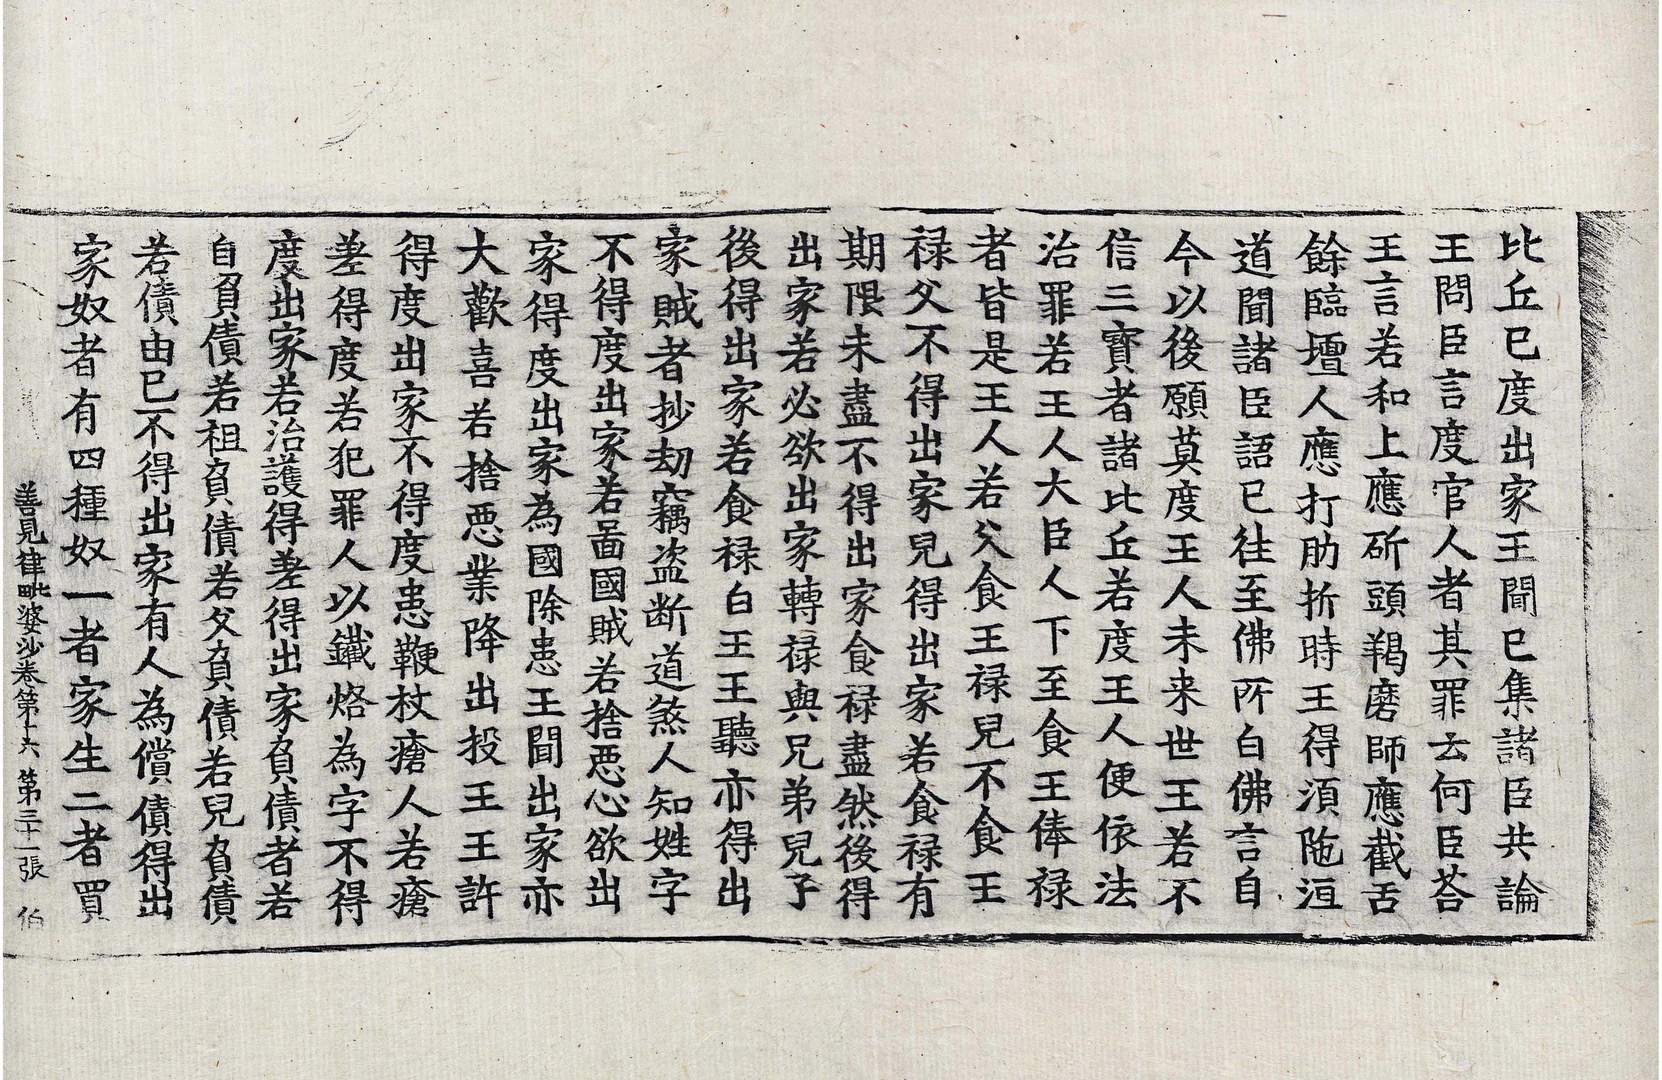 比丘已度出家王聞已集諸臣共論
王問臣言度官人者其罪云何臣荅
王言若和上應斫頭羯磨師應截舌
餘臨壇人應打肋折時王得湏陁洹
道聞諸臣語已往至佛所白佛言自
今以後願莫度王人未来世王若不
信三寳者諸比丘若度王人便依法
治罪若王人大臣人下至食王俸禄
者皆是王人若父食王禄兒不食王
禄父不得出家兒得出家若食禄有
期限未盡不得出家食禄盡然後得
出家若必欲出家轉禄與兄弟兒子
後得出家若食禄白王王聽亦得出
家賊者抄劫竊盗断道煞人知姓字
不得度出家若啚國賊若捨惡心欲出
家得度出家為國除患王聞出家亦
大歡喜若捨惡業降出投王王許
得度出家不得度患鞭杖瘡人若瘡
差得度若犯罪人以鐵烙為字不得
度出家若治護得差得出家負債者若
自負債若祖負債若父負債若兒負債
若債由已不得出家有人為償債得出
家奴者有四種奴一者家生二者買
善見律毗婆沙卷第十六 第三十一張 伯